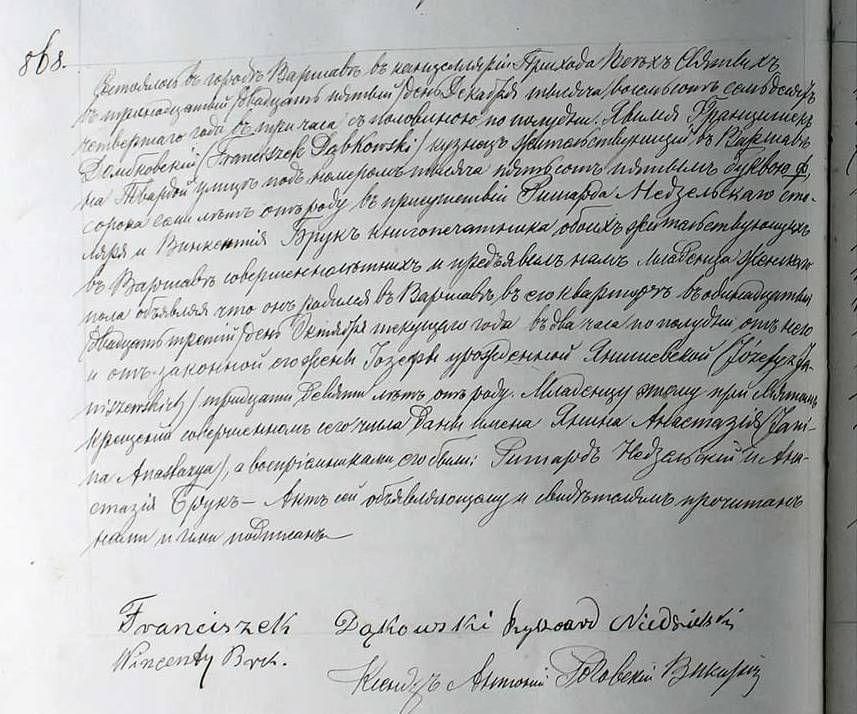 868.
Состоялось въ городѣ Варшавѣ въ канцеляріи Прихода Всѣхъ Святыхъ
въ тринадцатый /двадцать пятый/ день Декабря тысяча восемьсотъ семьдесятъ
четвертаго года въ три часа съ половиною по полудни. Явился Францишекъ
Домбковскій /Franciszek Dąbkowski/ кузнецъ жительствующій въ Варшавѣ
на Твардой улицѣ подъ номеромъ тысяча пятьсотъ пятымъ буквою
сорока семи лѣтъ отъ роду въ присутствіи Рышарда Недзельскаго сто-
ляра и Винкентія Брукъ книгопечатника обоихъ жительствующихъ
въ Варшавѣ совершеннолѣтнихъ и предъявилъ намъ младенца женскаго
пола объявляя что онъ родился въ Варшавѣ въ его квартирѣ въ одинадцатый
/двадцать третій/ день Октября текущаго года въ два часа по полудни отъ него
и отъ законной его жены Іозефы урожденной Янишевской /Józefy z Ja-
niszewskich/ тридцати девяти лѣтъ отъ роду. Младенцу этому при Святомъ
крещеніи совершенномъ сего числа даны имена Янина Анастазія /Jani-
na Anastazya/, а воспріемниками его были: Рышардъ Недзельскій и Ана-
стазія Брукъ — Актъ сей объявляющему и свидѣтелямъ прочитанъ
нами и ими подписанъ
Franciszek Dąkowski Ryszard Niedzielski
Wincenty Bruk.
Ксендзъ Антоній Викарій